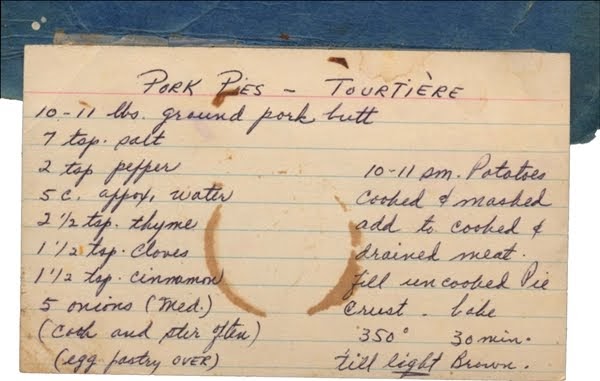 PORK PIES – TOURTIÈRE
10-11 lbs. ground pork butt
7 tsp. salt
2 tsp pepper
5 c. appox, water
2 1/2 tsp. thyme
1 1/2 tsp. cloves
1 1/2 tsp. cinnamon
5 onions (med.)
(cook and stir often)
(egg pastry OVER)
10-11 sm. Potatoes
cooked & mashed
add to cooked &
drained meat.
fill uncooked Pie
Crust - bake
350° 30 min.
till light Brown.